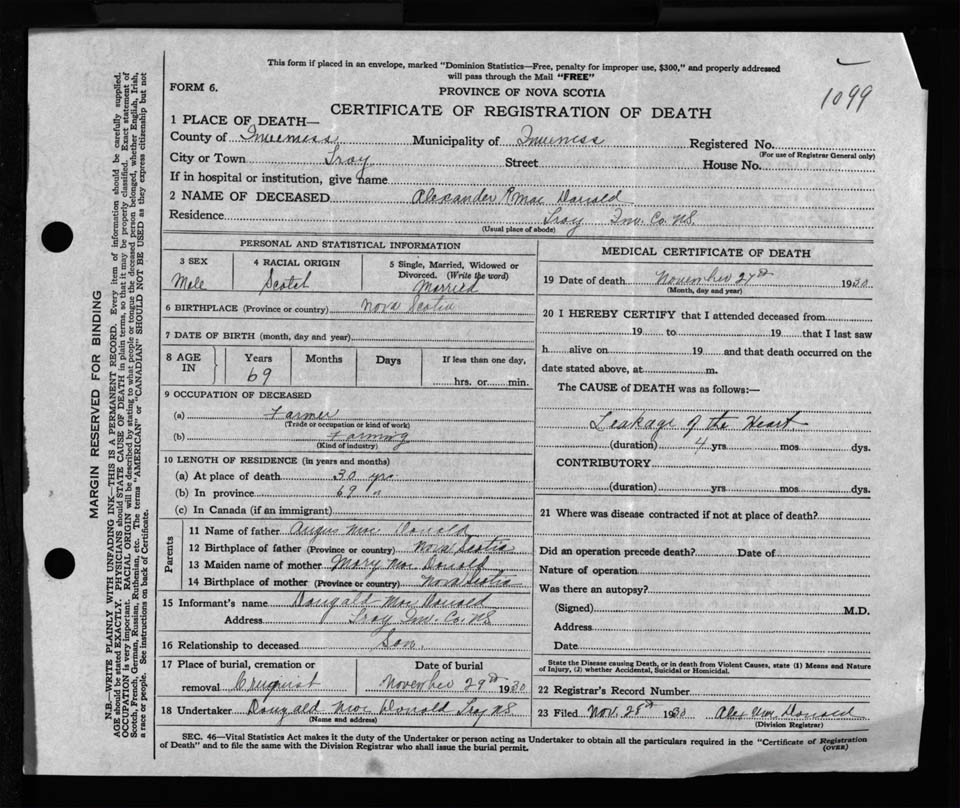 This form if placed in an envelope, marked "Dominion Statistics—Free, penalty for improper use, $300," and properly addressed
will pass through the Mail "FREE"
FORM 6.
PROVINCE OF NOVA SCOTIA
1099
CERTIFICATE OF REGISTRATION OF DEATH
1 PLACE OF DEATH—
County of Inverness Municipality of Inverness Registered No.
(For use of Registrar General only)
City or Town Troy Street House No.
If in hospital or institution, give name
2 NAME OF DECEASED Alexander Mac Donald
Residence Troy Inv. Co. N.S.
(Usual place of abode)
PERSONAL AND STATISTICAL INFORMATION
3 SEX 4 RACIAL ORIGIN 5 Single, Married, Widowed or Divorced. (Write the word)
Male Scotch Married
6 BIRTHPLACE (Province or country) Nova Scotia
7 DATE OF BIRTH (month, day and year)
8 AGE IN Years Months Days If less than one day,
69 hrs. or min.
9 OCCUPATION OF DECEASED
(a) Farmer
(Trade or occupation or kind of work)
(b) Farming
(Kind of industry)
10 LENGTH OF RESIDENCE (in years and months)
(a) At place of death 30 yrs
(b) In province 69 "
(c) In Canada (if an immigrant)
Parents
11 Name of father Angus Mac Donald
12 Birthplace of father (Province or country) Nova Scotia
13 Maiden name of mother Mary Mac Donald
14 Birthplace of mother (Province or country) Nova Scotia
15 Informant's name Dougall Mac Donald
Address Troy Inv. Co. N.S.
16 Relationship to deceased Son.
17 Place of burial, cremation or Date of burial
removal November 29th 1930
18 Undertaker Dougald Mac Donald Troy N.S.
(Name and address)
MEDICAL CERTIFICATE OF DEATH
19 Date of death November 27th 1930
(Month, day and year)
20 I HEREBY CERTIFY that I attended deceased from
19 to 19 that I last saw
h alive on 19 and that death occurred on the
date stated above, at m.
The CAUSE of DEATH was as follows:—
Leakage of the Heart
(duration) 4 yrs. mos. dys.
CONTRIBUTORY
(duration) yrs. mos. dys.
21 Where was disease contracted if not at place of death?
Did an operation precede death? Date of
Nature of operation
Was there an autopsy?
(Signed) M.D.
Address
Date
State the Disease causing Death, or in death from Violent Causes, state (1) Means and Nature
of Injury, (2) whether Accidental, Suicidal or Homicidal.
22 Registrar's Record Number
23 Filed Nov. 28th 1930 Alex Donald
(Division Registrar)
SEC. 46—Vital Statistics Act makes it the duty of the Undertaker or person acting as Undertaker to obtain all the particulars required in the "Certificate of Registration
of Death" and to file the same with the Division Registrar who shall issue the burial permit.
(OVER)
MARGIN RESERVED FOR BINDING
N.B.—WRITE PLAINLY WITH UNFADING INK—THIS IS A PERMANENT RECORD. Every item of information should be carefully supplied.
AGE should be stated EXACTLY. PHYSICIANS should STATE CAUSE OF DEATH in plain terms, so that it may be properly classified. Exact statement of
OCCUPATION is very important. RACIAL ORIGIN will be described by stating to what people or tongue the deceased person belonged, whether English, Irish,
Scotch, French, German, Russian, Ruthenian, etc. The terms "AMERICAN" or "CANADIAN" SHOULD NOT BE USED as they express citizenship but not
a race or people. See instructions on back of Certificate.